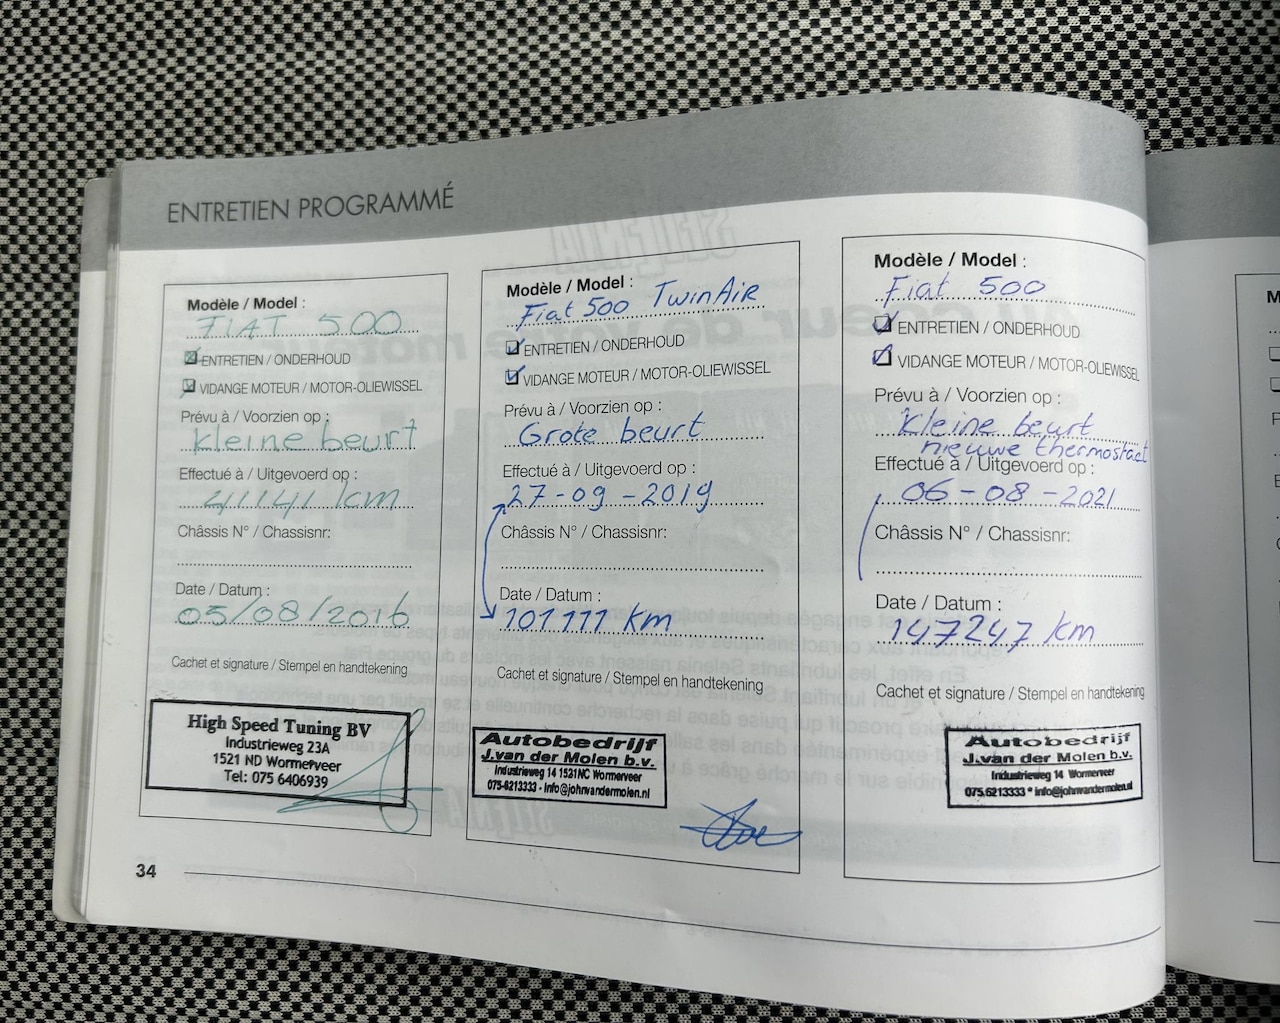 ENTRETIEN PROGRAMMÉ
Modèle / Model :
FIAT 500
ENTRETIEN / ONDERHOUD
VIDANGE MOTEUR / MOTOR-OLIEWISSEL
Prévu à / Voorzien op :
kleine beurt
Effectué à / Uitgevoerd op :
41141 km
Châssis N° / Chassisnr:
Date / Datum :
05/08/2016
Cachet et signature / Stempel en handtekening
High Speed Tuning BV
Industrieweg 23A
1521 ND Wormerveer
Tel: 075 6406939
Modèle / Model :
Fiat 500 TwinAir
ENTRETIEN / ONDERHOUD
VIDANGE MOTEUR / MOTOR-OLIEWISSEL
Prévu à / Voorzien op :
Grote beurt
Effectué à / Uitgevoerd op :
27-09-2019
Châssis N° / Chassisnr:
Date / Datum :
101111 km
Cachet et signature / Stempel en handtekening
Autobedrijf
J.van der Molen b.v.
Industrieweg 14 1521NC Wormerveer
075-6213333 - Info@johnvandermolen.nl
Modèle / Model :
Fiat 500
ENTRETIEN / ONDERHOUD
VIDANGE MOTEUR / MOTOR-OLIEWISSEL
Prévu à / Voorzien op :
Kleine beurt
nieuwe thermostaat
Effectué à / Uitgevoerd op :
06-08-2021
Châssis N° / Chassisnr:
Date / Datum :
147247 km
Cachet et signature / Stempel en handtekening
Autobedrijf
J.van der Molen b.v.
Industrieweg 14 Wormerveer
075.6213333 * info@johnvandermolen.nl
34